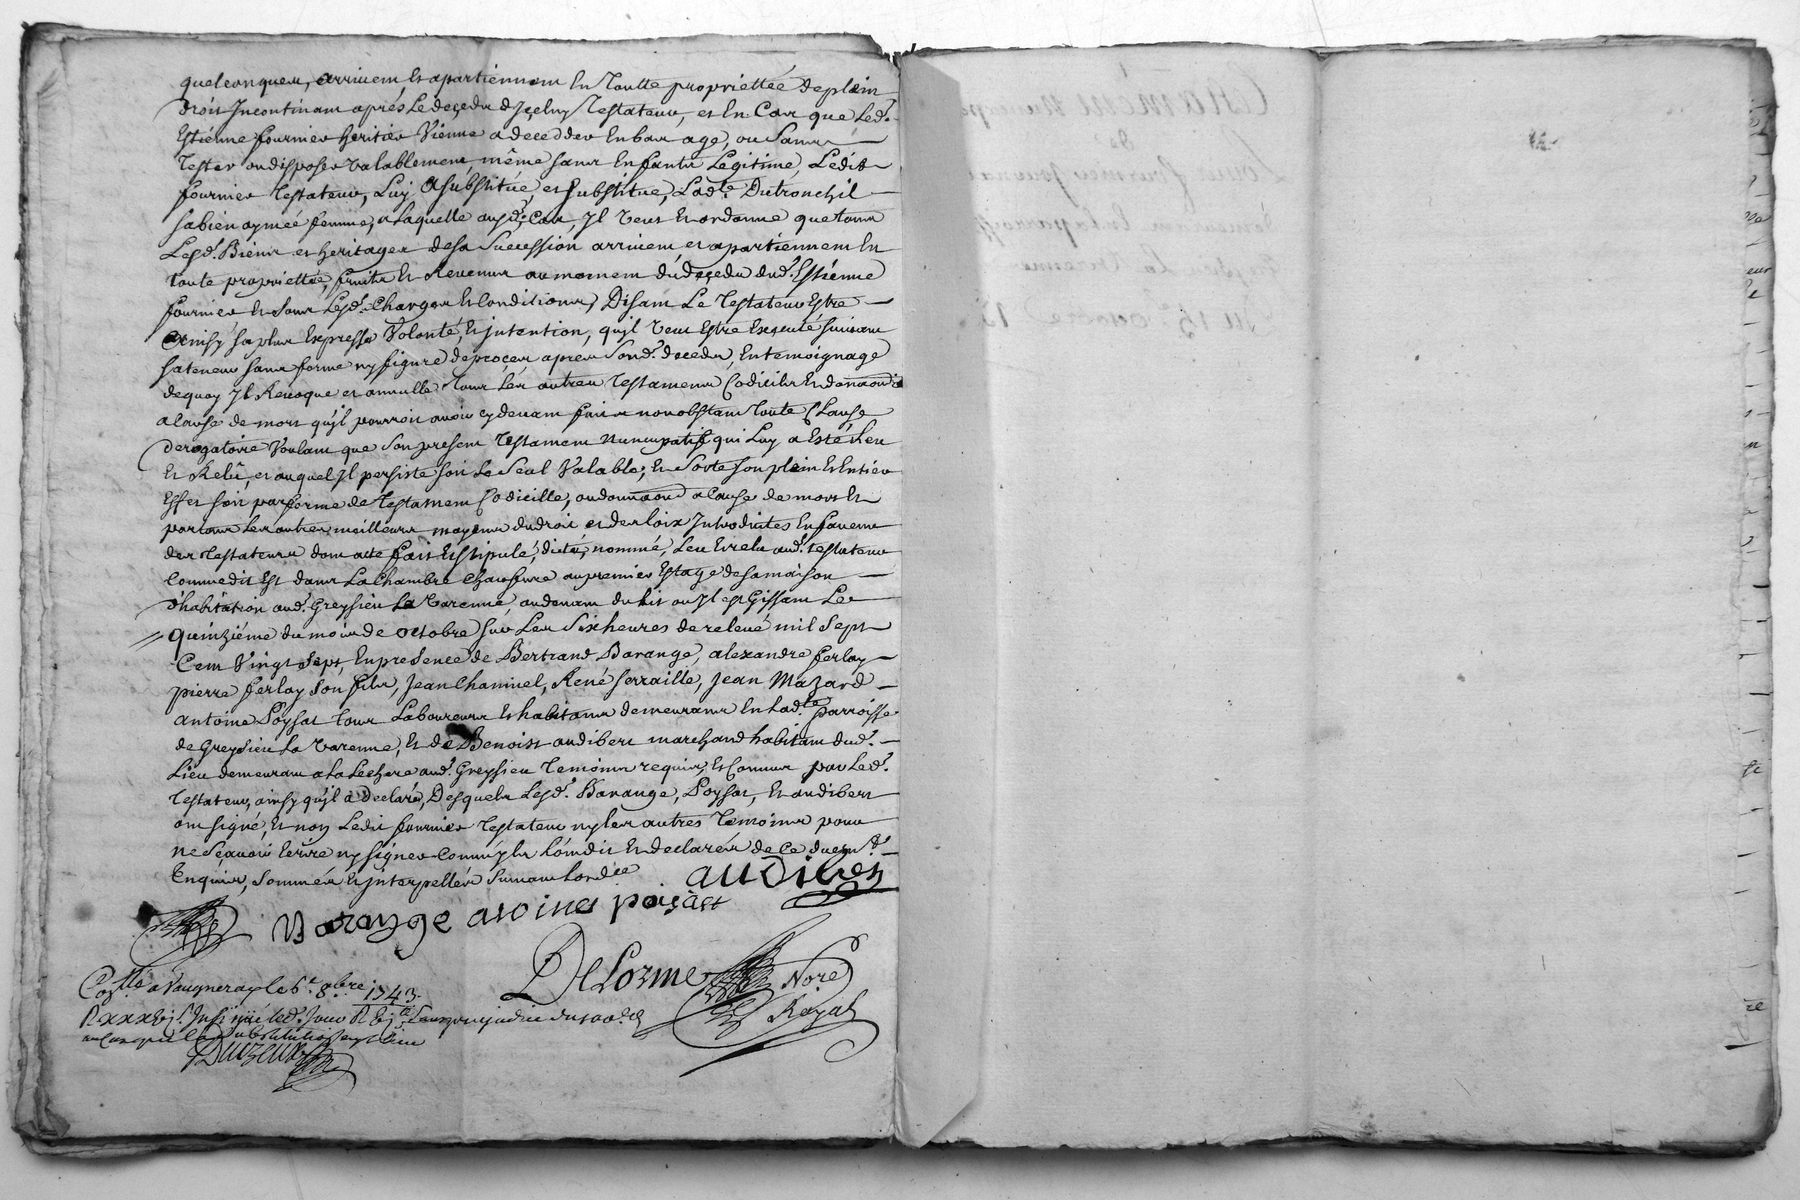 quelconques, arrivent et apartiennent en toutte propriettée de plein
droit Incontinant aprés le deçeds d'Içeluy Testateur, et En Cas que Led.
Estienne fournier heritier Vienne a deçedder en bas age, ou Sans
Tester ou disposer valablement même sans Enfants Legitime, Ledit
fournier Testateur, Luy A substitué, et substitue, Lad.te Dutronchil
sa bien aymée femme, a laquelle aud. Cas, Il veut et ordonne que tous
Lesd. Biens et heritages de sa Sucession arrivent et apartiennent En
toute propriettée, fruits et Revenus au moment du deçeds dud. Estienne
fournier et sous Lesd. Charges et Conditions, Disant Le Testateur Estre
Ainsy sa plus Expresse Volonté, et jntention, qu'jl veut Estre Executé suivant
sa teneur sans forme ny figure de proçes apres Sond. deceds, En temoignage
de quoy Jl Revoque et annulle tous les autres Testaments Codicils et donnaon
a Cause de mort qu'jl pourroit avoir cy devant fait nonobstant toute Clause
derogatoire Voulant que Son present Testament Nuncupatif qui Luy a Esté Leu
Et Relû, et auquel Jl persiste soit Le Seul Valable, et Sorte son plein et Entier
Effet soit par forme de Testament Codicille, ou donnaon a Cause de mort Et
par tous les autres meilleurs moyens du droit et des loix Introduites En faveur
des Testateurs dont acte fait et stipulé, dicté, nommé, Leu et relu aud. testateur
Comme dit Est dans La Chambre au premier Estage de sa maison
d'habitation aud. Greysieu La Varenne, au devant du lit ou jl est Gissant Le
quinziéme du mois de octobre sur Les Six heures de relevé mil Sept
Cent Vingt Sept, En presence de Bertrand Barange, alexandre ferlay
pierre ferlay Son fils, Jean Chaninel, René ferraille, Jean Mazard
antoine Poysat tous Laboureurs et habitants demeurants En Lad.te Parroisse
de Greysieu La Varenne, Et de Benoist audibert marchand habitant dud.
Lieu demeurant a La Lechere aud. Greysieu Temoins requis, et Connus par Led.
Testateur, ainsy qu'jl a Declaré, Desquels Lesd. Barange, Poysat, et audibert
ont signé, Et non Ledit fournier Testateur ny les autres Temoins pour
ne Sçavoir Ecrire ny signer Comm'jls L'ont dit et declarés de Ce
Enquis, Sommés et jnterpellés Suivant Lord.ce
audiber
Barange
Delorme
Nore
Royal
Con.llé a Vaugneray le 6.e 8bre 1743